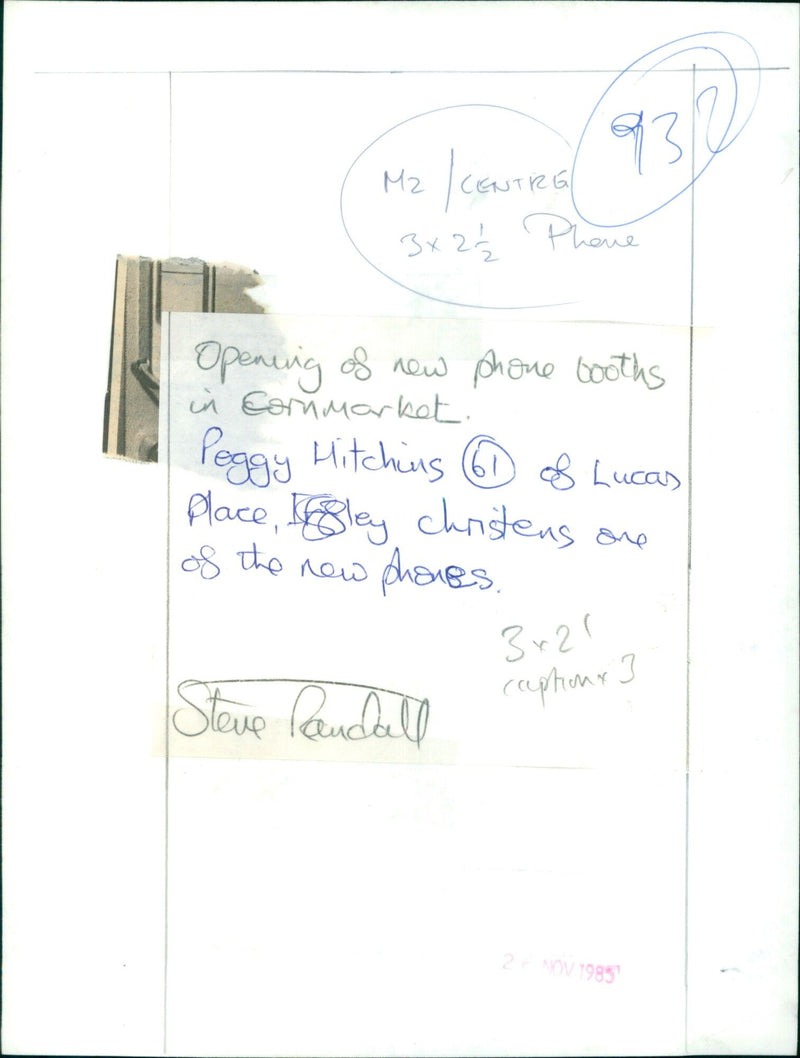 93
M2 / CENTRE
3 x 2 ½ Phone
Opening of new phone booths
in Cornmarket.
Peggy Hitchins (61) of Lucas
Place, Iffley christens one
of the new phones.
3 x 2
caption x 3
Steve Randall
NOV 1985